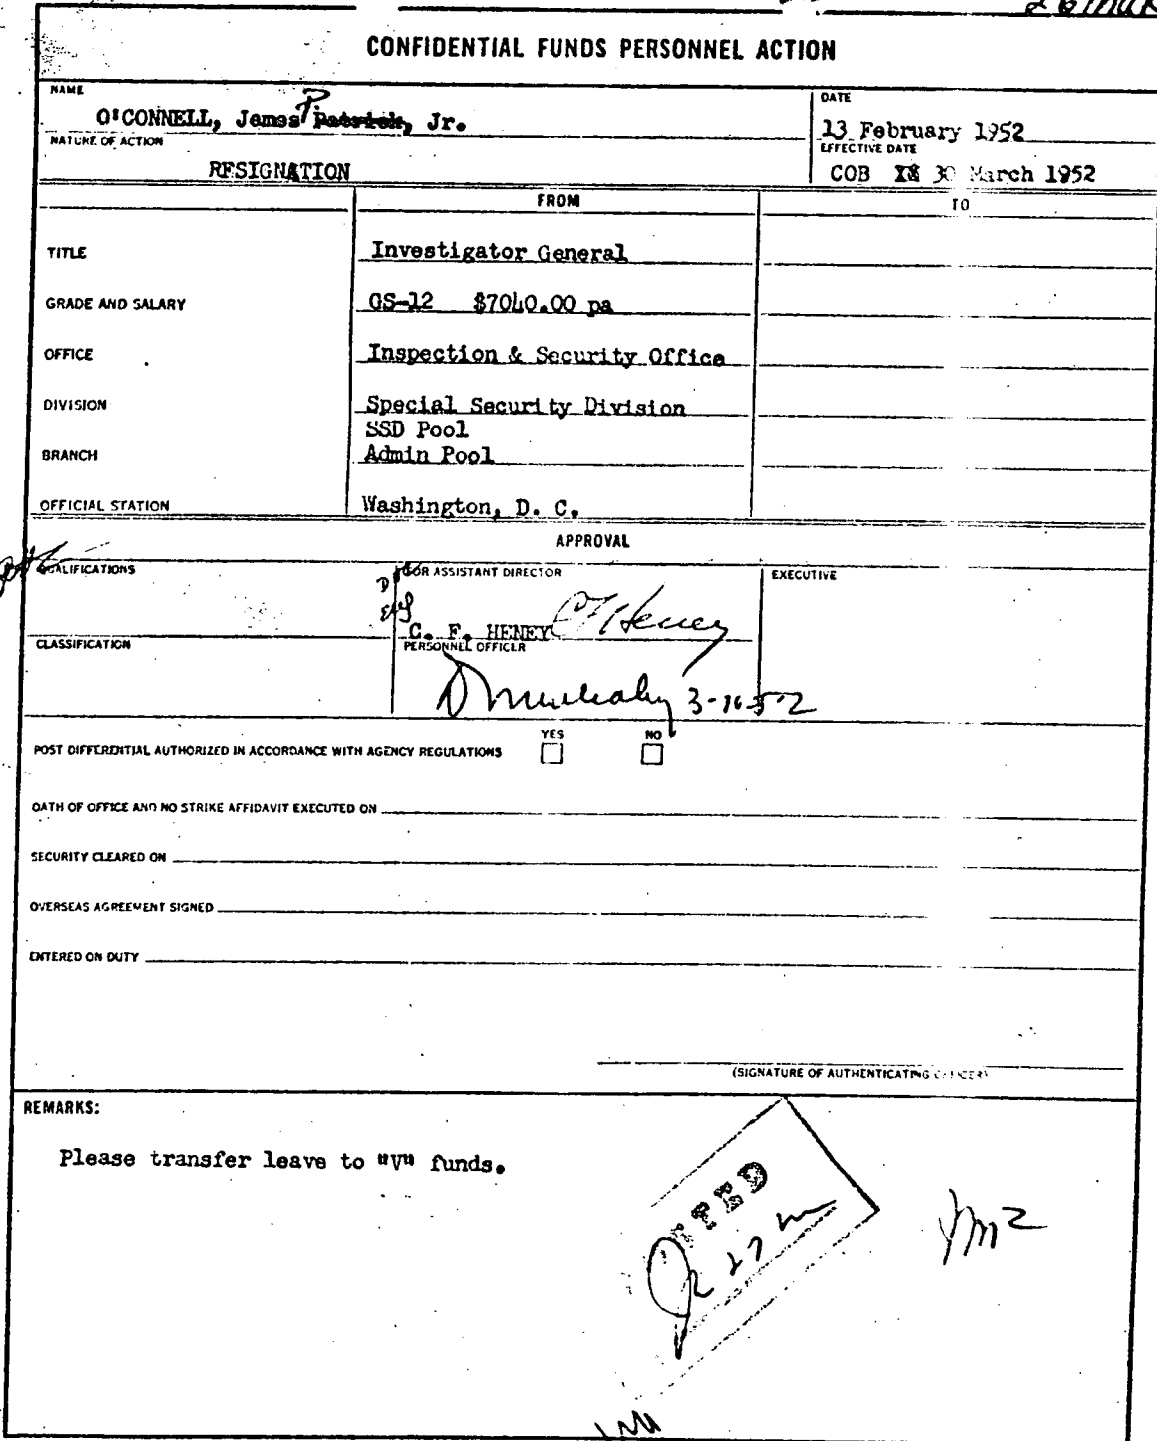 CONFIDENTIAL FUNDS PERSONNEL ACTION
NAME
O'CONNELL, James P. Patrick, Jr.
DATE
13 February 1952
NATURE OF ACTION
RESIGNATION
EFFECTIVE DATE
COB 30 March 1952
FROM
TO
TITLE
Investigator General
GRADE AND SALARY
GS-12 $7040.00 pa
OFFICE
Inspection & Security Office
DIVISION
Special Security Division
SSD Pool
BRANCH
Admin Pool
OFFICIAL STATION
Washington, D. C.
APPROVAL
QUALIFICATIONS
FOR ASSISTANT DIRECTOR
EXECUTIVE
C. F. HENEY C F Heney
CLASSIFICATION
PERSONNEL OFFICER
POST DIFFERENTIAL AUTHORIZED IN ACCORDANCE WITH AGENCY REGULATIONS YES NO
OATH OF OFFICE AND NO STRIKE AFFIDAVIT EXECUTED ON
SECURITY CLEARED ON
OVERSEAS AGREEMENT SIGNED
ENTERED ON DUTY
(SIGNATURE OF AUTHENTICATING OFFICER)
REMARKS:
Please transfer leave to "V" funds.